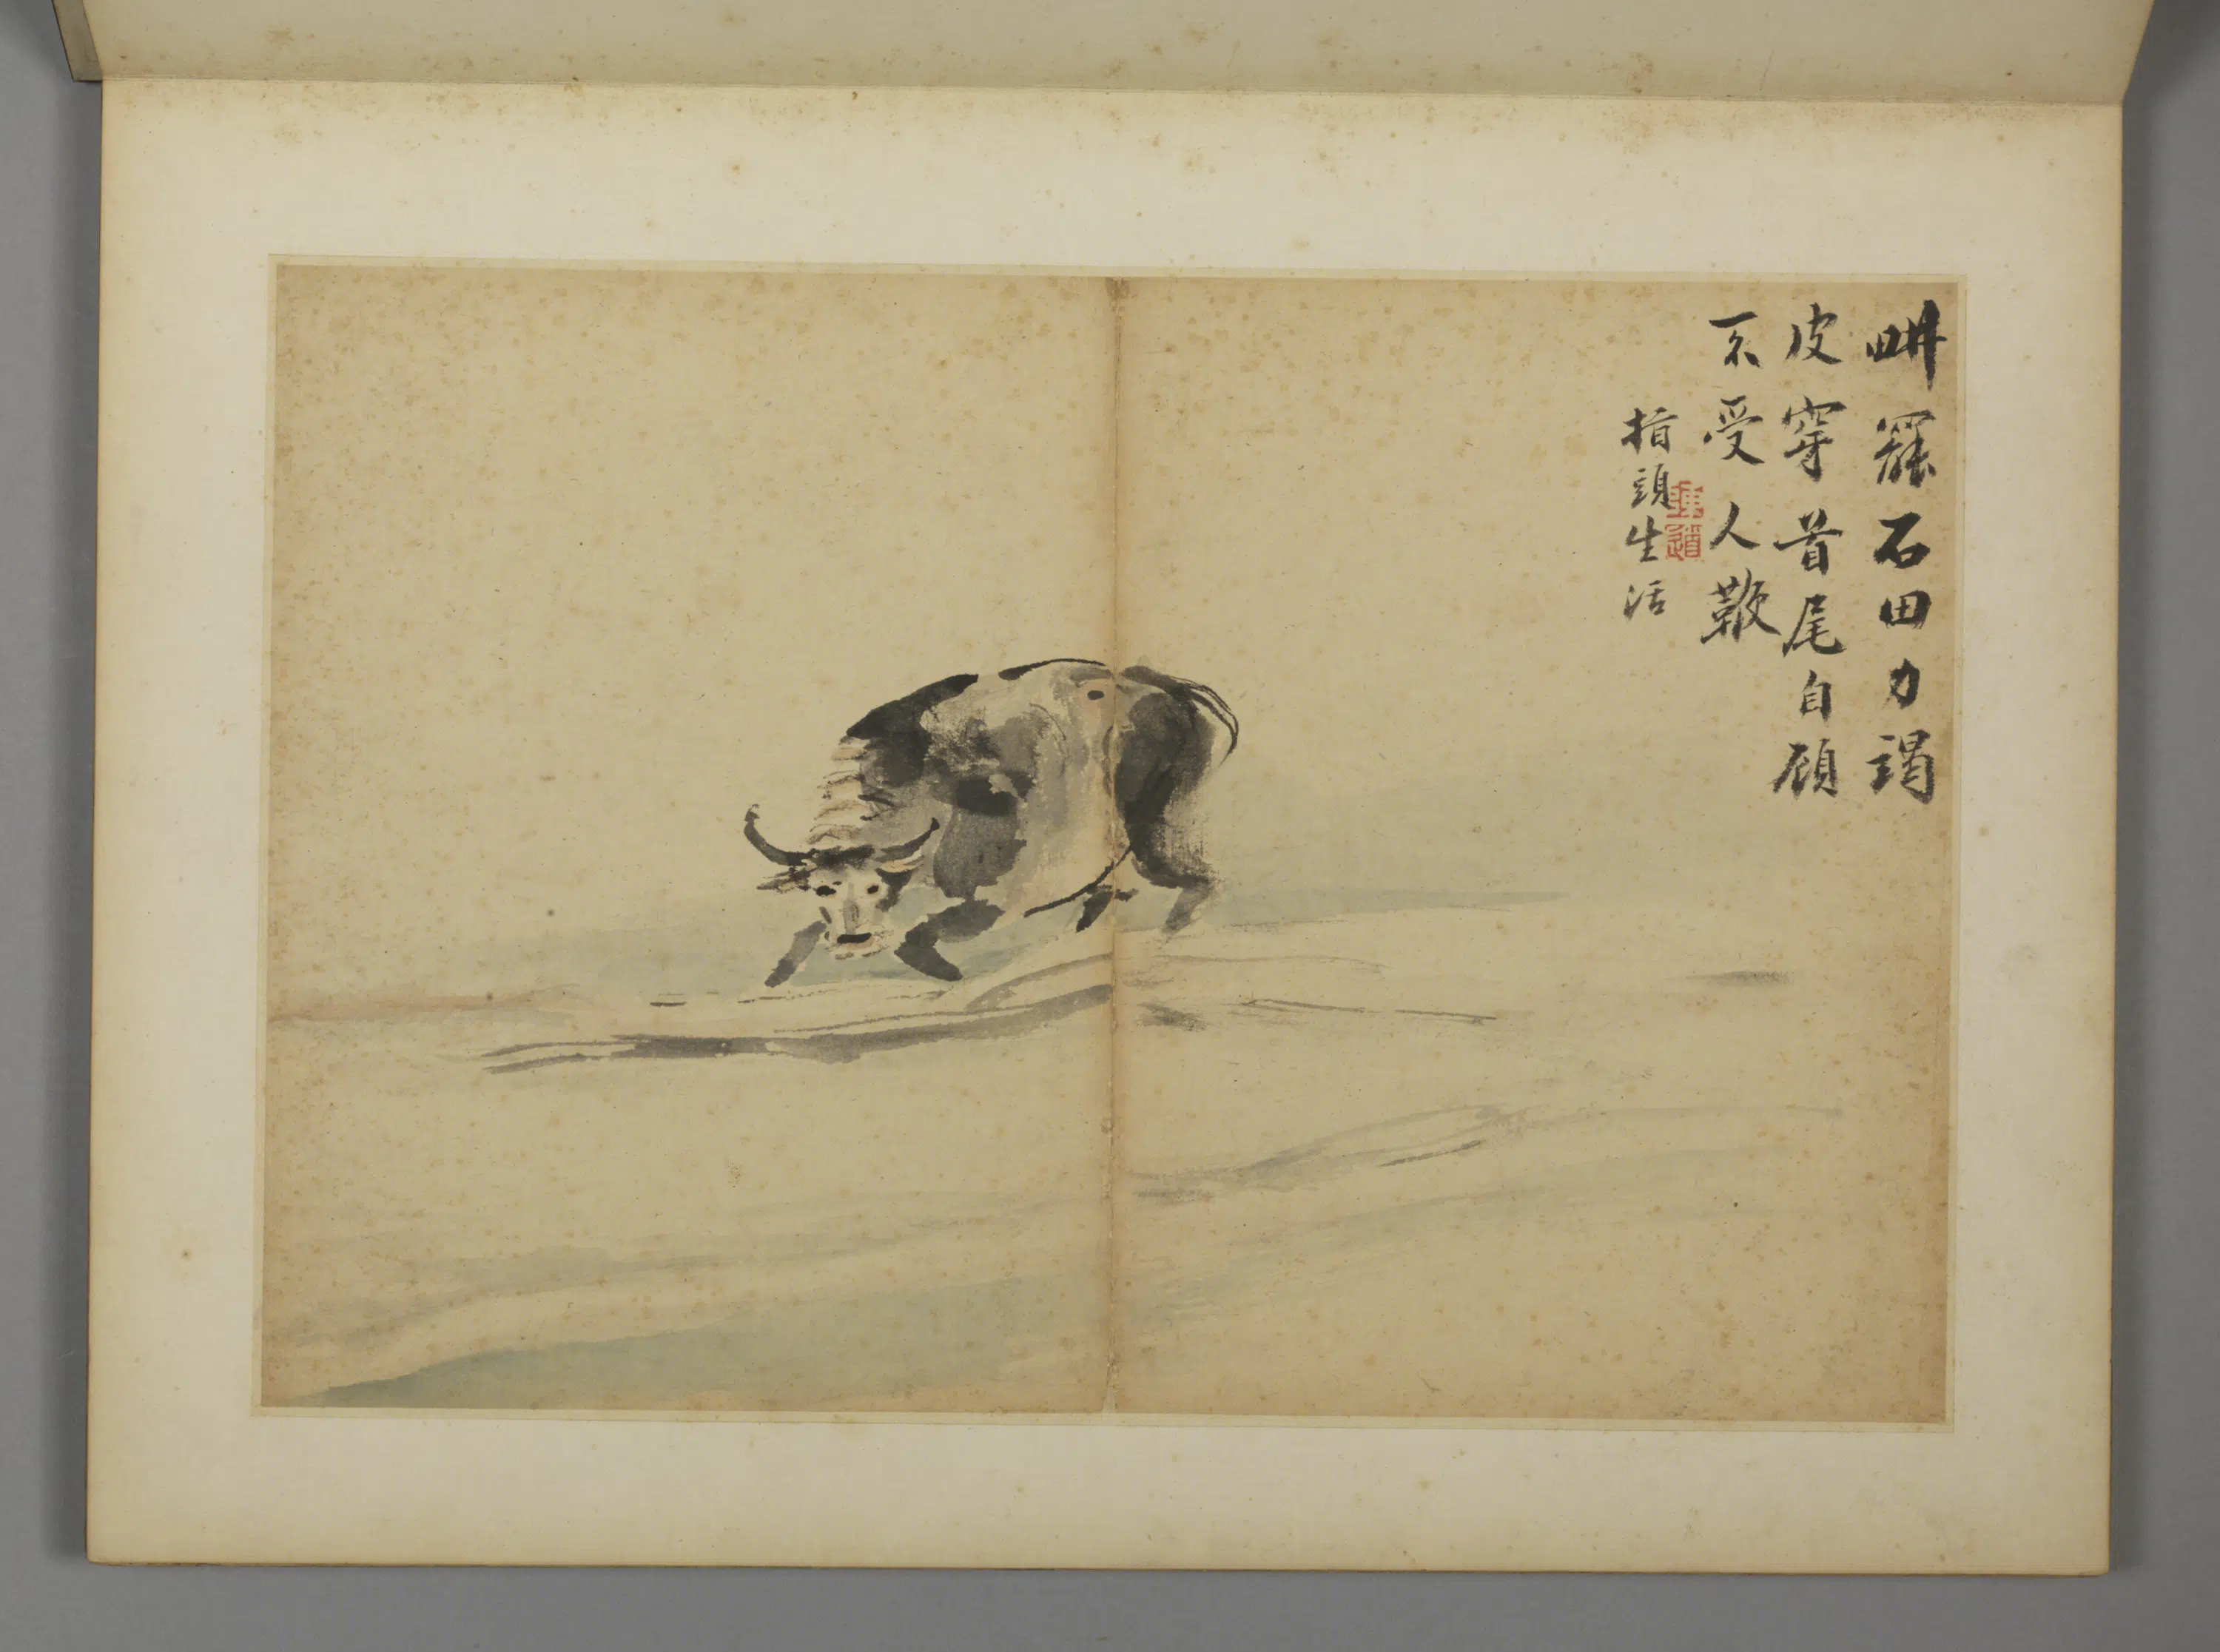 畊罷石田力竭
皮穿首尾自顧
不受人鞭
指頭生活